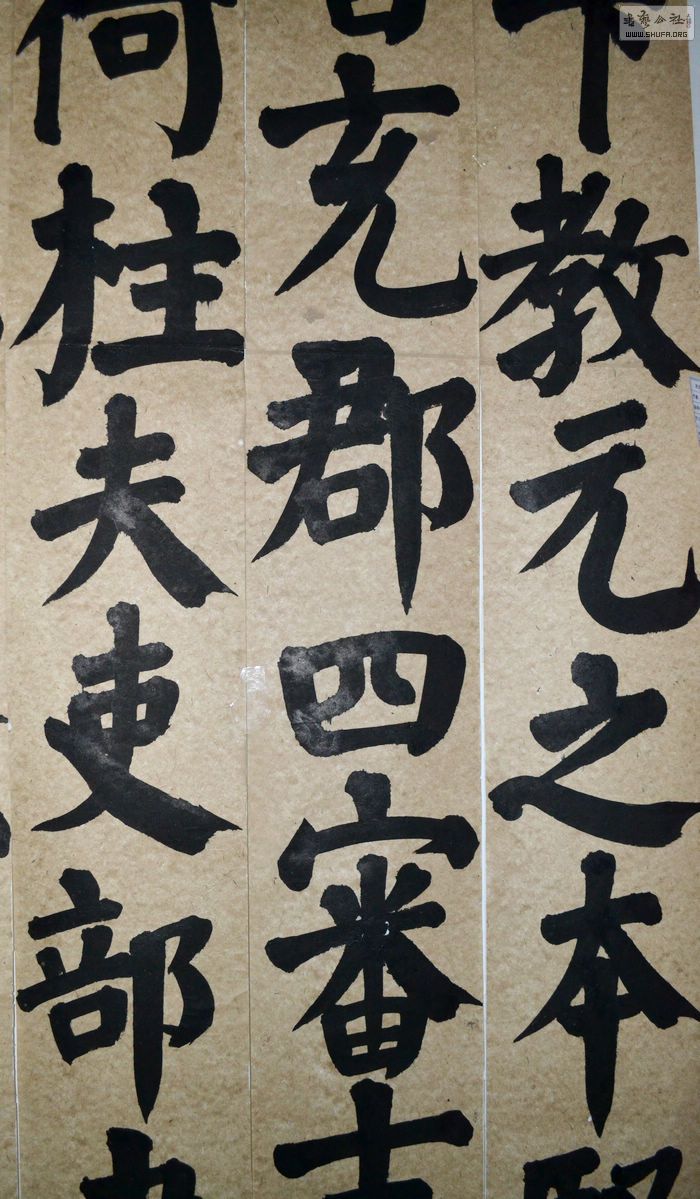 教元之本
充郡四審
何柱夫吏部
書藝公社
WWW.SHUFA.ORG